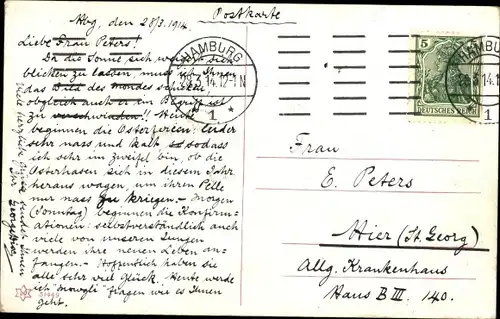 Hbg, den 28/3. 1914.
Postkarte
Liebe Frau Peters!
Da die Sonne sich weigert sich
blicken zu lassen, muss ich Ihnen
das Bild des Mondes schicken
obgleich auch er im Begriff ist
zu verschwinden!! Heute
beginnen die Osterferien; leider
sehr nass und kalt, sodass
ich sehr im Zweifel bin, ob die
Osterhasen sich in diesem Jahr
heraus wagen, um ihren Pelle
nur nass zu kriegen. Morgen
(Sonntag) beginnen die Konfirm-
ationen; selbstverständlich auch
viele von unseren Jungen
werden ihre neues Leben an-
fangen. Hoffentlich haben sie
alle sehr viel Glück. Heute werde
ich "mowgli" fragen wie es Ihnen
geht.
Viele herzliche Grüsse sendet Ihnen
Ihr
HAMBURG
28.3.14.12-1N
* 1 *
5
DEUTSCHES REICH
HAMBURG
1
Frau
E. Peters
Hier (St. Georg)
Allg. Krankenhaus
Haus B III. 140.